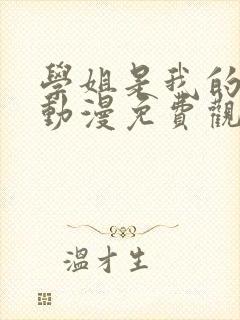 學姐是我的
動漫免費觀
溫才生